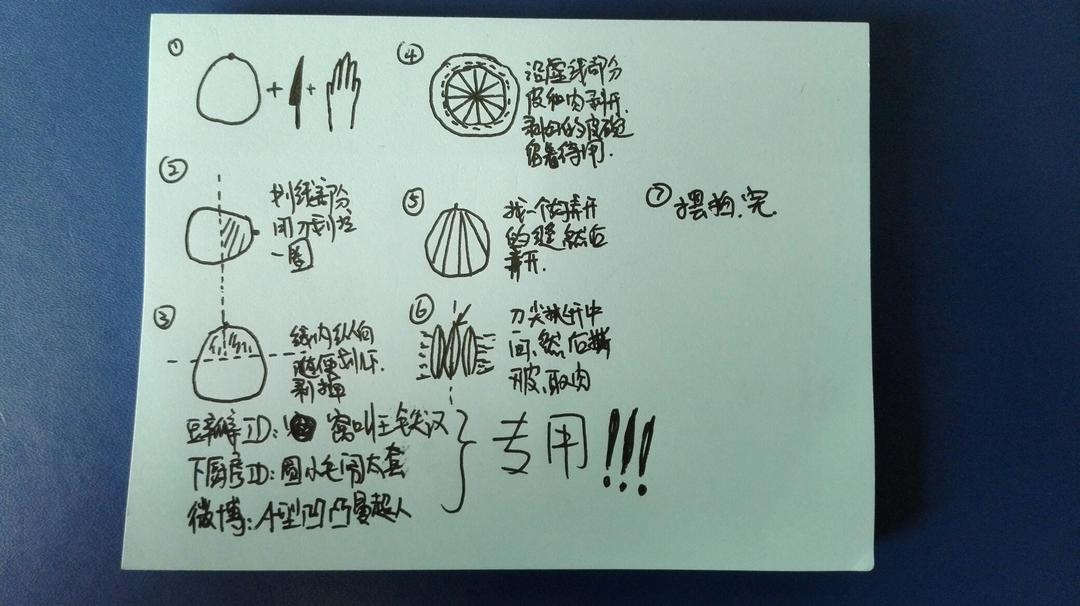 ①
+ +
②
划线部分
用刀划拉
一圈
③
线内纵向
随便划下.
剥掉
④
沿虚线部分
皮和肉剥开.
剥的皮碗
留着待用.
⑤
找一个好弄开
的缝然后
弄开.
⑥
刀尖挑开中
间,然后撕
开皮,取肉
⑦ 摆拍.完.
豆瓣ID: 窝叫王铁汉
下厨房ID:圆小毛闹太套
微博:A型凹凸曼超人
专用!!!